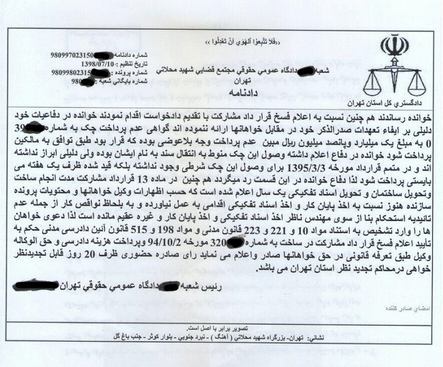 ((فلا تتبعوا الهوی ان تعدلوا))
شماره دادنامه: 9809970231500
تاریخ تنظیم: 1398/07/10
شماره پرونده: 980998023150
شماره بایگانی شعبه: 980
شعبه دادگاه عمومی حقوقی مجتمع قضایی شهید محلاتی
تهران
دادنامه
دادگستری کل استان تهران
خوانده رساندند هم چنین نسبت به اعلام فسخ قرار داد مشارکت با تقدیم دادخواست اقدام نمودند خوانده در دفاعیات خود
دلیلی بر ایفاء تعهدات صدرالذکر خود در مقابل خواهانها ارائه ننموده اند گواهی عدم پرداخت چک به شماره 39
0 به مبلغ یک میلیارد وپانصد میلیون ریال مبین عدم پرداخت وجه بلاعوضی بوده که قرار بود طبق توافق به مالکین
پرداخت شود خوانده در دفاع اعلام داشته وصول این چک منوط به انتقال سند به نام ایشان بوده ولی دلیلی ابراز نداشته
اند و در متمم قرارداد مورخه 1395/3/3 برای وصول این چک شرطی وجود نداشته بلکه قید شده ظرف یک هفته می
بایستی پرداخت شود لذا دفاع خوانده در این قسمت رد میگردد هم چنین در ماده 13 قرارداد مشارکت مدت انجام ساخت
وتحویل ساختمان و تحویل اسناد تفکیکی یک سال اعلام شده است که حسب اظهارات وکیل خواهانها و محتویات پرونده
سازنده هنوز نسبت به اخذ پایان کار و اخذ اسناد تفکیکی اقدامی به عمل نیاورده و به لحاظ نواقص کار از جمله عدم
تائیدیه استحکام بنا از سوی مهندس ناظر اخذ اسناد تفکیکی و اخذ پایان کار و غیره عقیم مانده است لذا دعوی خواهان
ها را وارد تشخیص به استناد مواد 10 و 221 و 223 قانون مدنی و مواد 198 و 515 قانون آئین دادرسی مدنی حکم به
تأیید اعلام فسخ قرار داد مشارکت در ساخت به شماره 320 مورخه 94/10/2 وپرداخت هزینه دادرسی و حق الوکاله
وکیل طبق تعرفه قانونی در حق خواهانها صادر واعلام می نماید رای صادره حضوری ظرف 20 روز قابل تجدیدنظر
خواهی درمحاکم تجدید نظر استان تهران می باشد.
رئیس شعبه دادگاه عمومی حقوقی تهران
امضای صادر کننده
تصویر برابر با اصل است.
نشانی: تهران- بزرگراه شهید محلاتی ( آهنگ ) - نبرد جنوبی - بلوار کوثر - جنب باغ گل